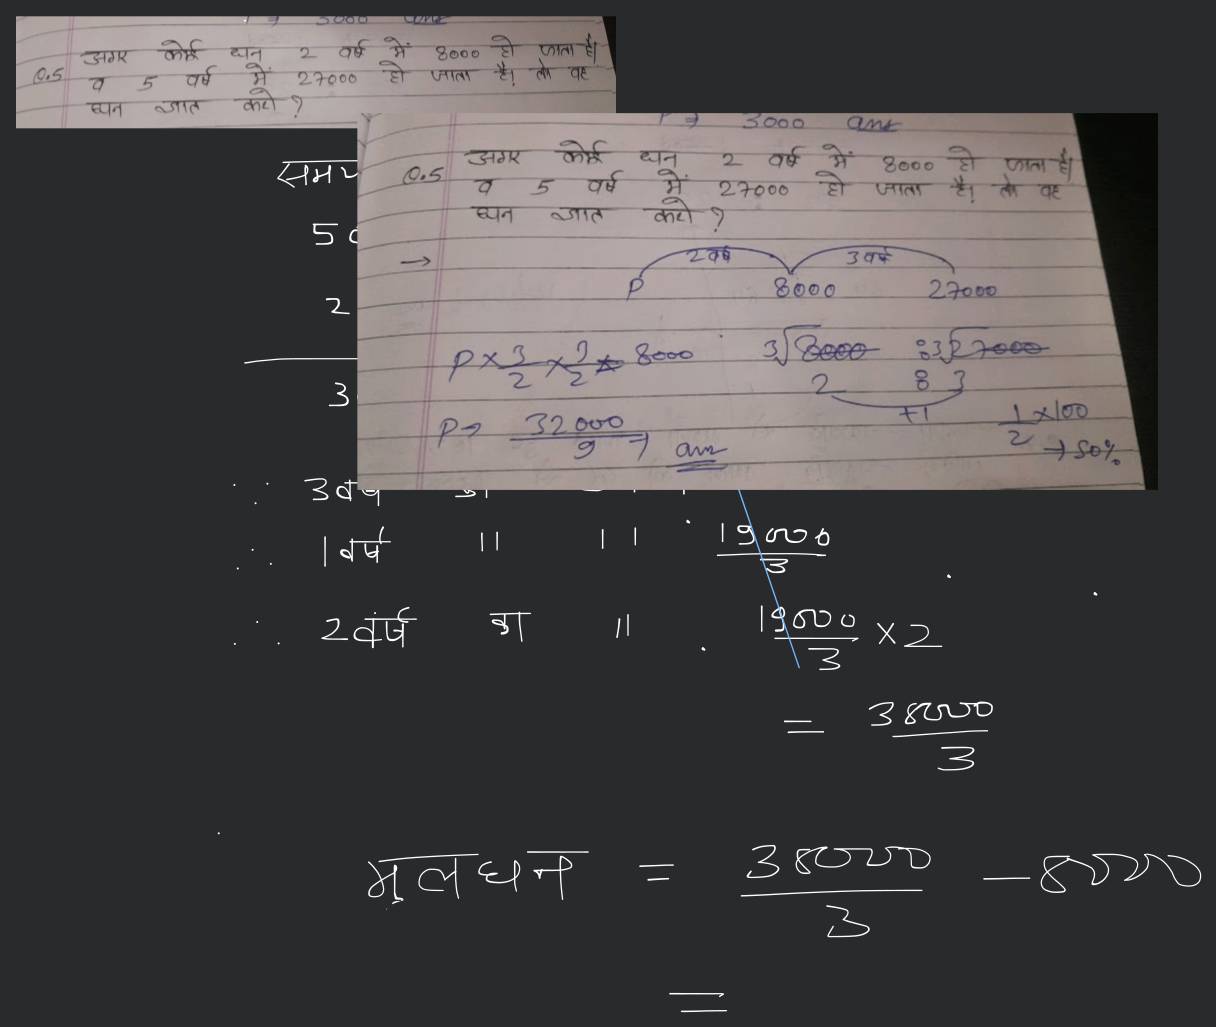 3000 ans
Q.5 अगर कोई धन 2 वर्ष में 8000 हो जाता है।
व 5 वर्ष में 27000 हो जाता है। तो वह
धन ज्ञात करो ?
P → 3000 ans
Q.5 अगर कोई धन 2 वर्ष में 8000 हो जाता है।
व 5 वर्ष में 27000 हो जाता है। तो वह
धन ज्ञात करो ?
→ 2 वर्ष 3 वर्ष
P 8000 27000
P × 3/2 × 3/2 = 8000 3√8000 3√27000
2 3
+1 1/2 × 100
P → 32000/9 → ans → 50%
समय
50
2
3
∵ 3 वर्ष का
∴ 1 वर्ष " " 19000/3
∴ 2 वर्ष का " 19000/3 × 2
= 38000/3
मूलधन = 38000/3 - 8000
=